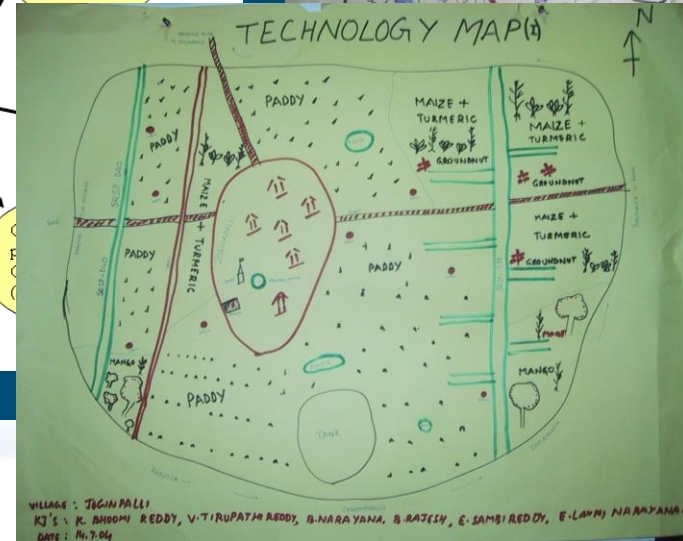 TECHNOLOGY MAP(I)
N
PADDY
PADDY
MAIZE +
TURMERIC
GROUNDNUT
MAIZE +
TURMERIC
GROUNDNUT
MAIZE + TURMERIC
MAIZE +
TURMERIC
GROUNDNUT
PADDY
PADDY
MANGO
PADDY
TANK
MANGO
VILLAGE : JOGINPALLI
KJ'S : K. BHOOMI REDDY, V. TIRUPATHI REDDY, B. NARAYANA, B. RAJESH, E. SAMBI REDDY, E. LAXMI NARAYANA
DATE : 14.7.04